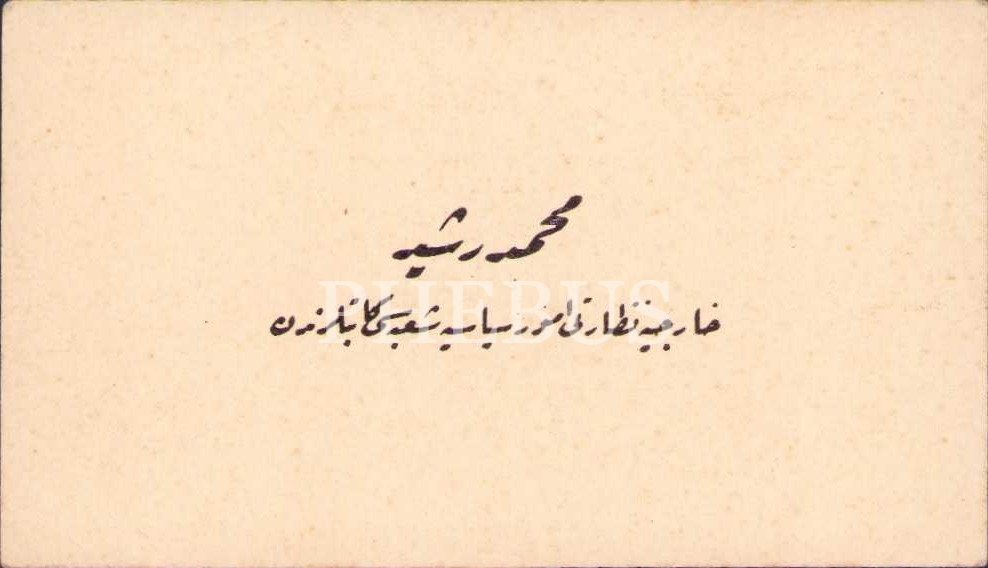 محمد رشيد
خارجيه نظارتى امور سياسيه شعبه سى كاتبلرندن
PHEBUS